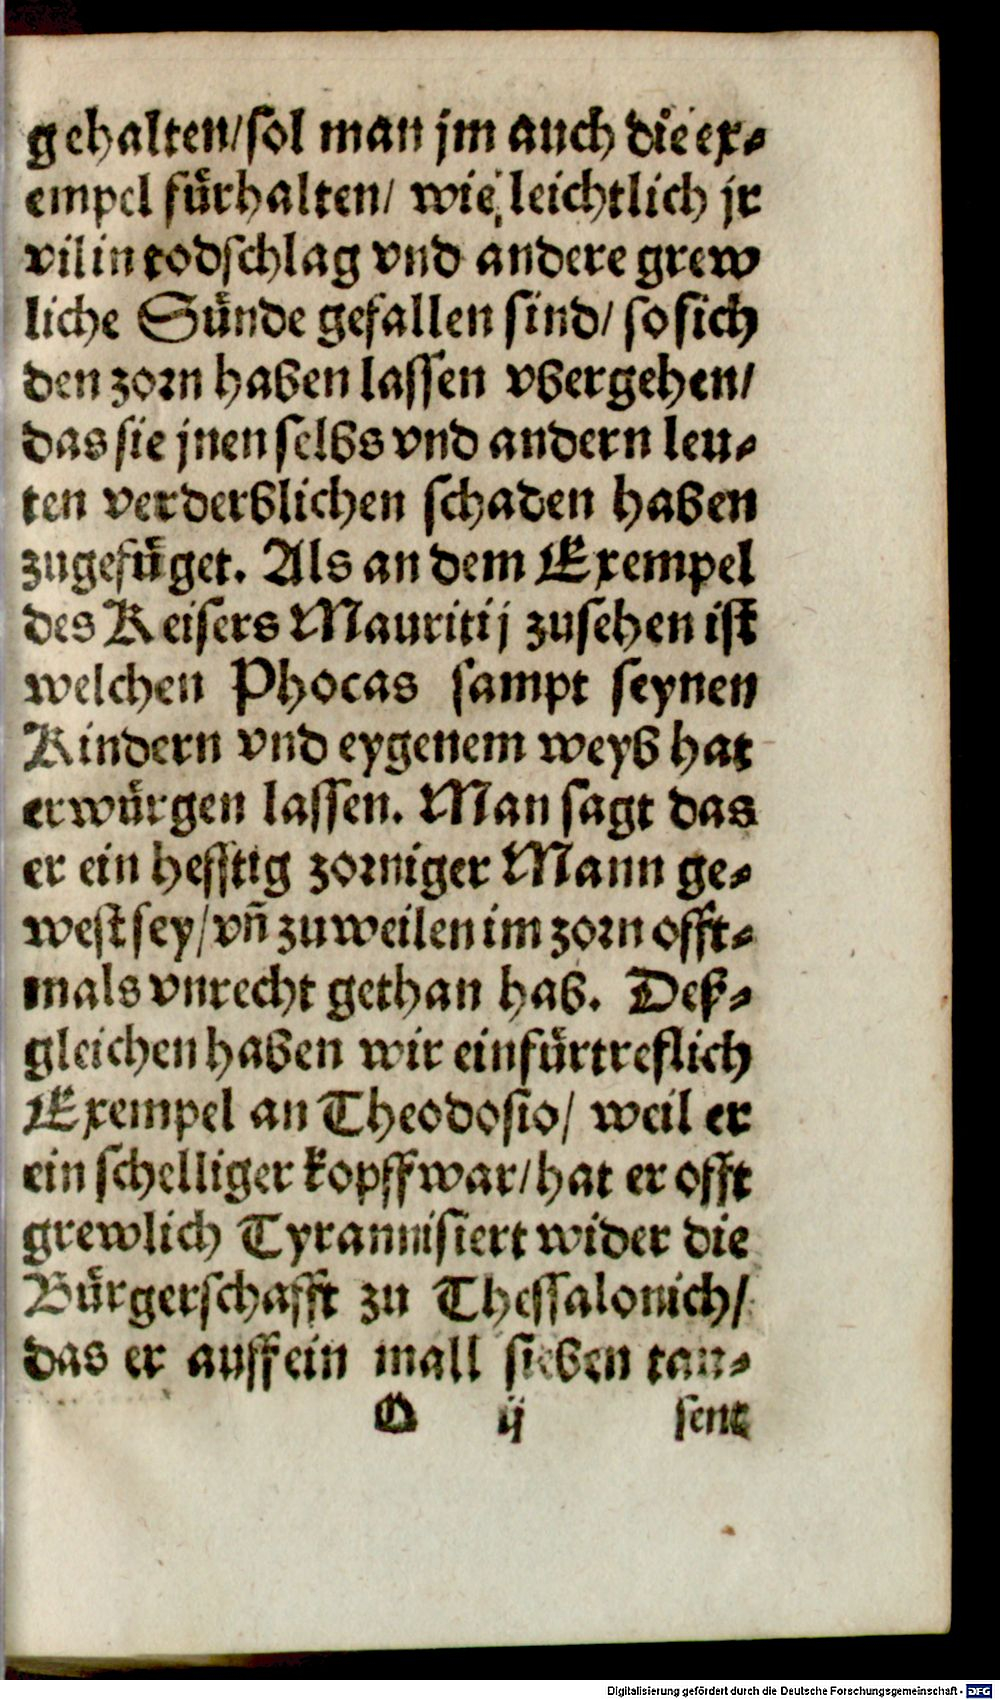 gehalten/sol man jm auch die ex⸗
empel fürhalten/ wie leichtlich jr
vil in todschlag vnd andere grew
liche Sünde gefallen sind/ so sich
den zorn haben lassen vbergehen/
das sie jnen selbs vnd andern leu⸗
ten verderblichen schaden haben
zugefüget. Als an dem Exempel
des Keisers Mauritij zusehen ist
welchen Phocas sampt seynen
Kindern vnd eygenem weyb hat
erwürgen lassen. Man sagt das
er ein hefftig zorniger Mann ge⸗
west sey/vñ zuweilen im zorn offt⸗
mals vnrecht gethan hab. Deß⸗
gleichen haben wir ein fürtreflich
Exempel an Theodosio/ weil er
ein schelliger kopff war/hat er offt
grewlich Tyrannisiert wider die
Bürgerschafft zu Thessalonich/
das er auff ein mall sieben tau⸗
O ij sent
Digitalisierung gefördert durch die Deutsche Forschungsgemeinschaft - DFG